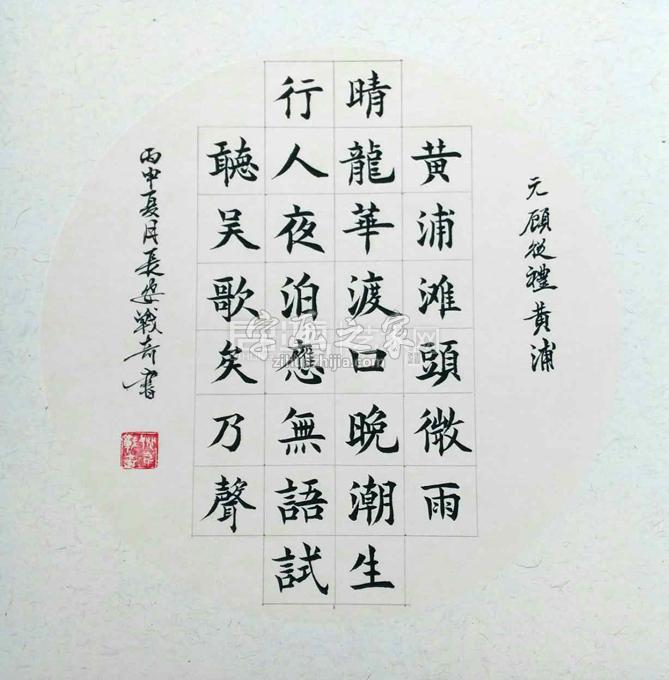 元顧從禮黄浦
黄浦滩頭微雨
晴龍華渡口晚潮生
行人夜泊應無語試
聽吴歌矣乃聲
丙申夏月長安戰奇書
字画之家网
zihuazhijia.com